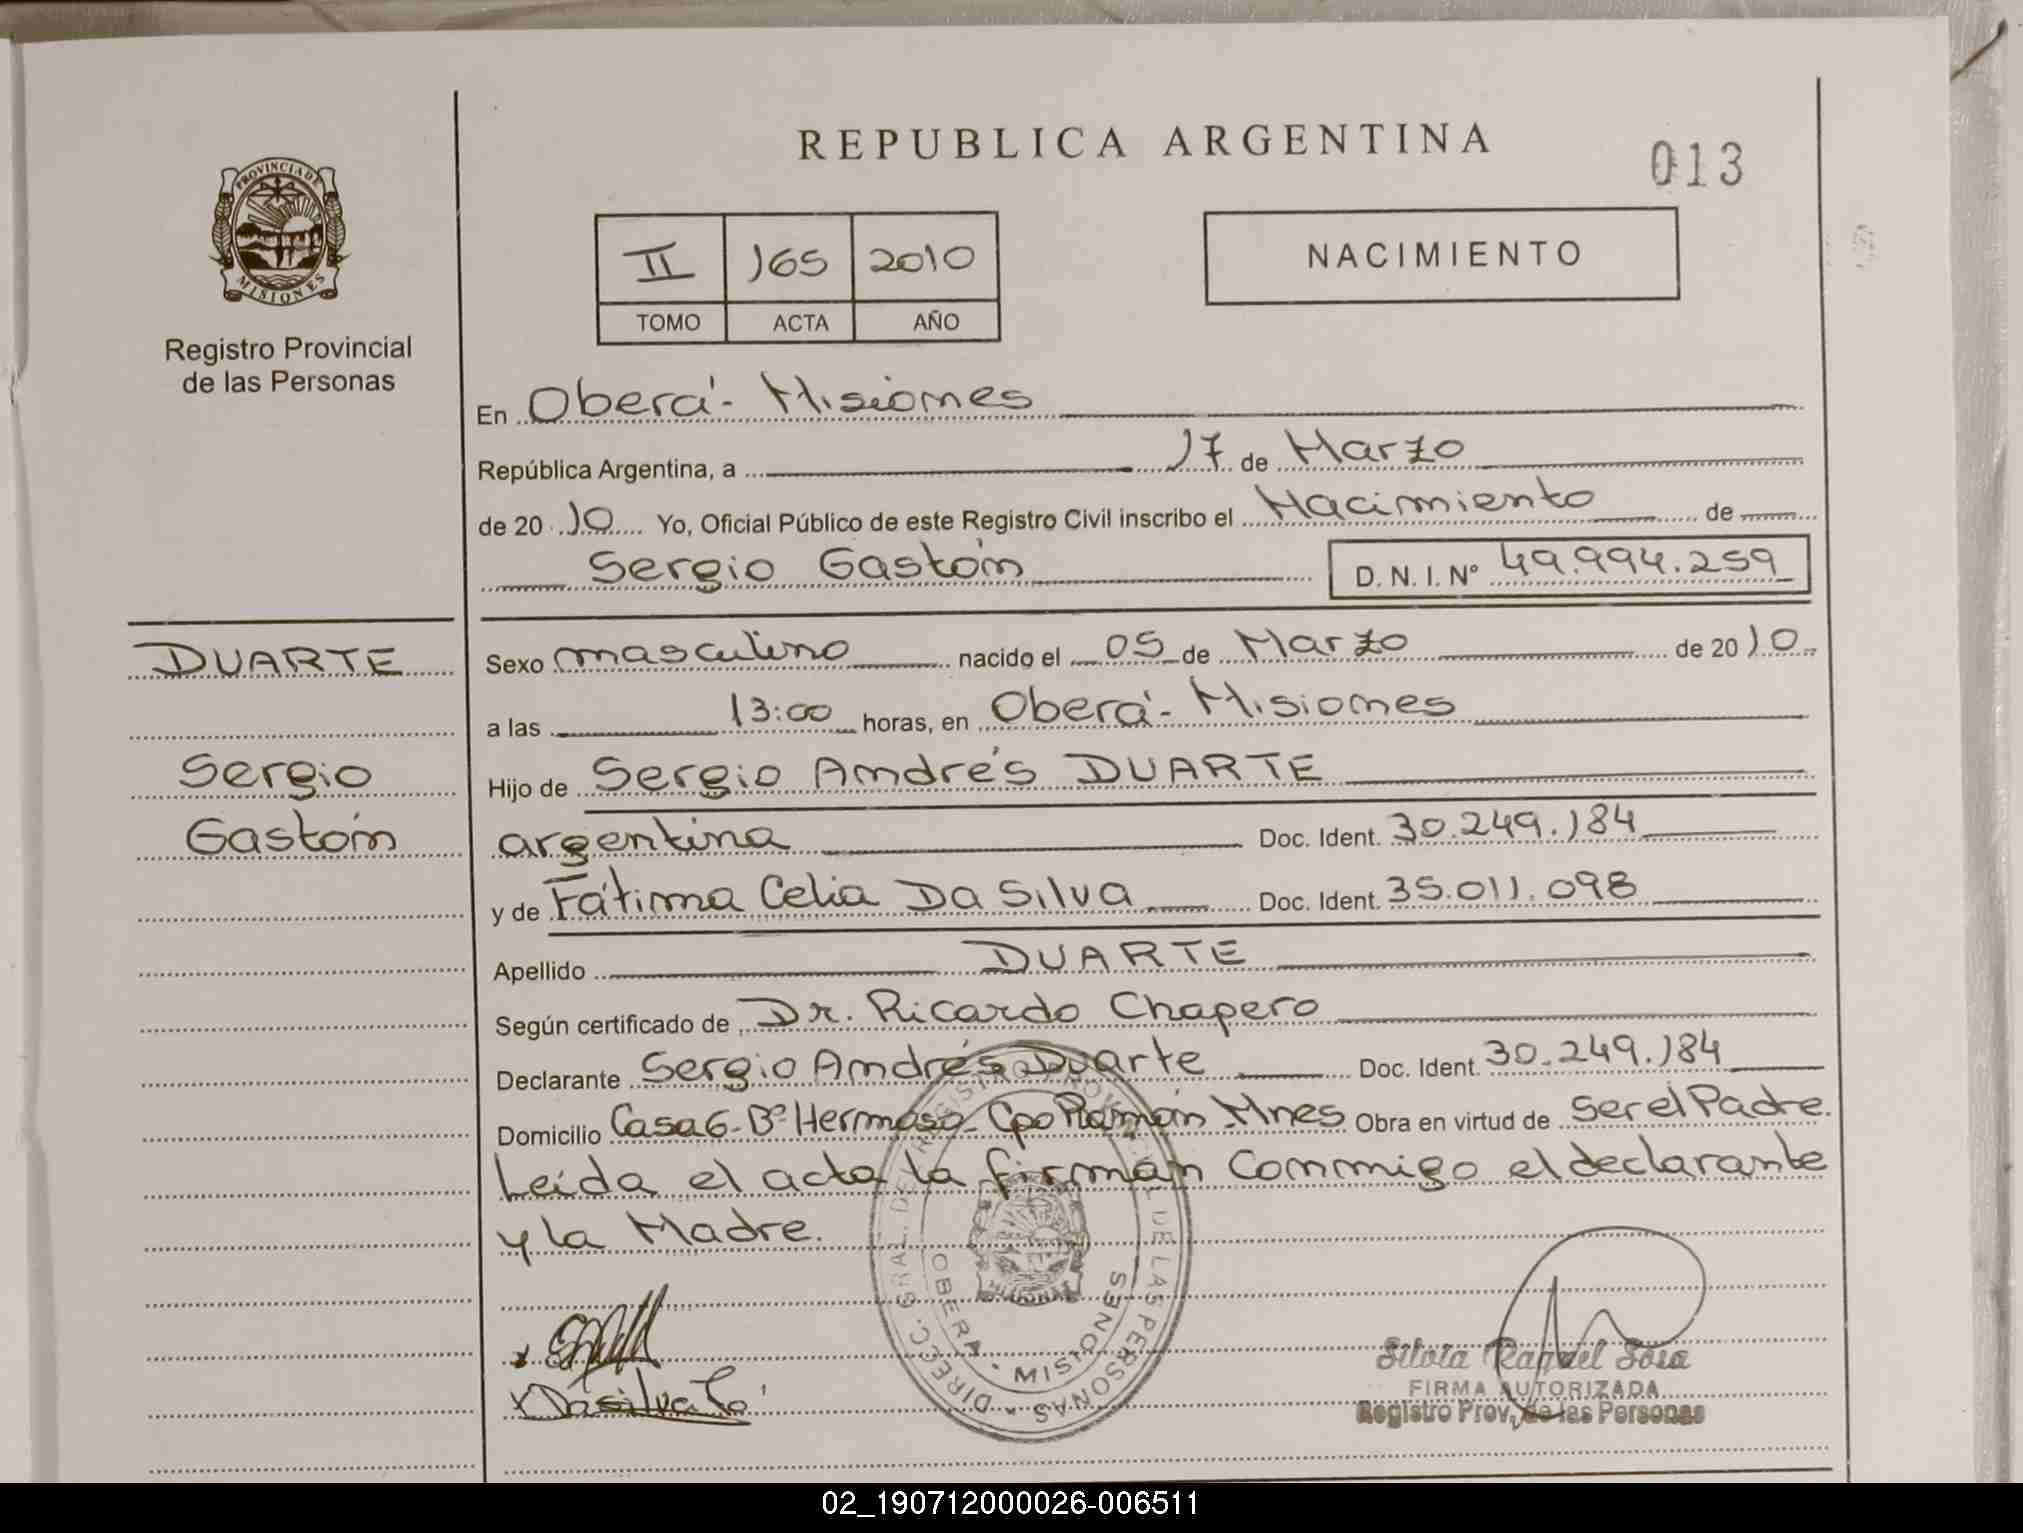 REPUBLICA ARGENTINA
013
PROVINCIA DE
MISIONES
Registro Provincial
de las Personas
II 165 2010
TOMO ACTA AÑO
NACIMIENTO
En Oberá - Misiones
República Argentina, a 17 de Marzo
de 2010 Yo, Oficial Público de este Registro Civil inscribo el Nacimiento de
Sergio Gastón D. N. I. Nº 49.994.259
DUARTE
Sergio
Gastón
Sexo masculino nacido el 05 de Marzo de 2010
a las 13:00 horas, en Oberá - Misiones
Hijo de Sergio Andrés DUARTE
argentina Doc. Ident. 30.249.184
y de Fátima Celia Da Silva Doc. Ident. 35.011.098
Apellido DUARTE
Según certificado de Dr. Ricardo Chapero
Declarante Sergio Andrés Duarte Doc. Ident. 30.249.184
Domicilio Casa 6 - Bº Hermoso - Cpo Ramón Mnes Obra en virtud de Ser el Padre.
Leída el acta la firman conmigo el declarante
y la Madre.
DIRECC. GRAL. DEL REGISTRO PROVINCIAL DE LAS PERSONAS
OBERA - MISIONES
MISIONES
x
x Da silva
Silvia Raquel Sosa
FIRMA AUTORIZADA
Registro Prov. de las Personas
02_190712000026-006511